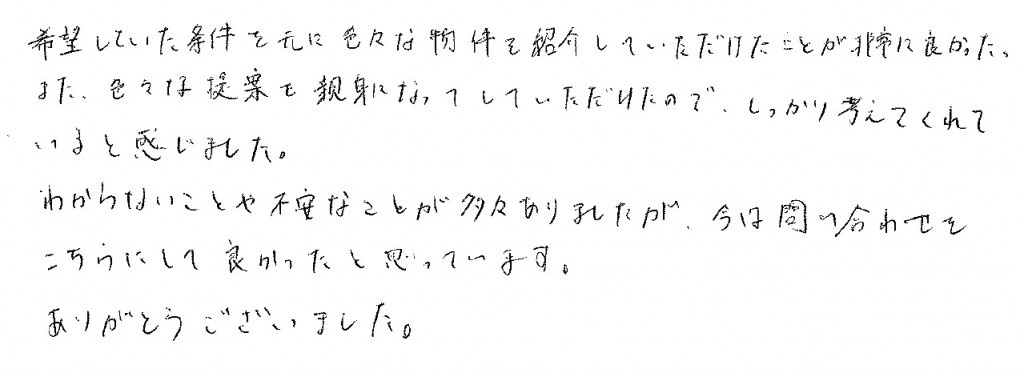 希望していた条件を元に色々な物件を紹介していただけたことが非常に良かった。
また、色々な提案も親身になってしていただけたので、しっかり考えてくれて
いると感じました。
わからないことや不安なことが多々ありましたが、今は問い合わせを
こちらにして良かったと思っています。
ありがとうございました。